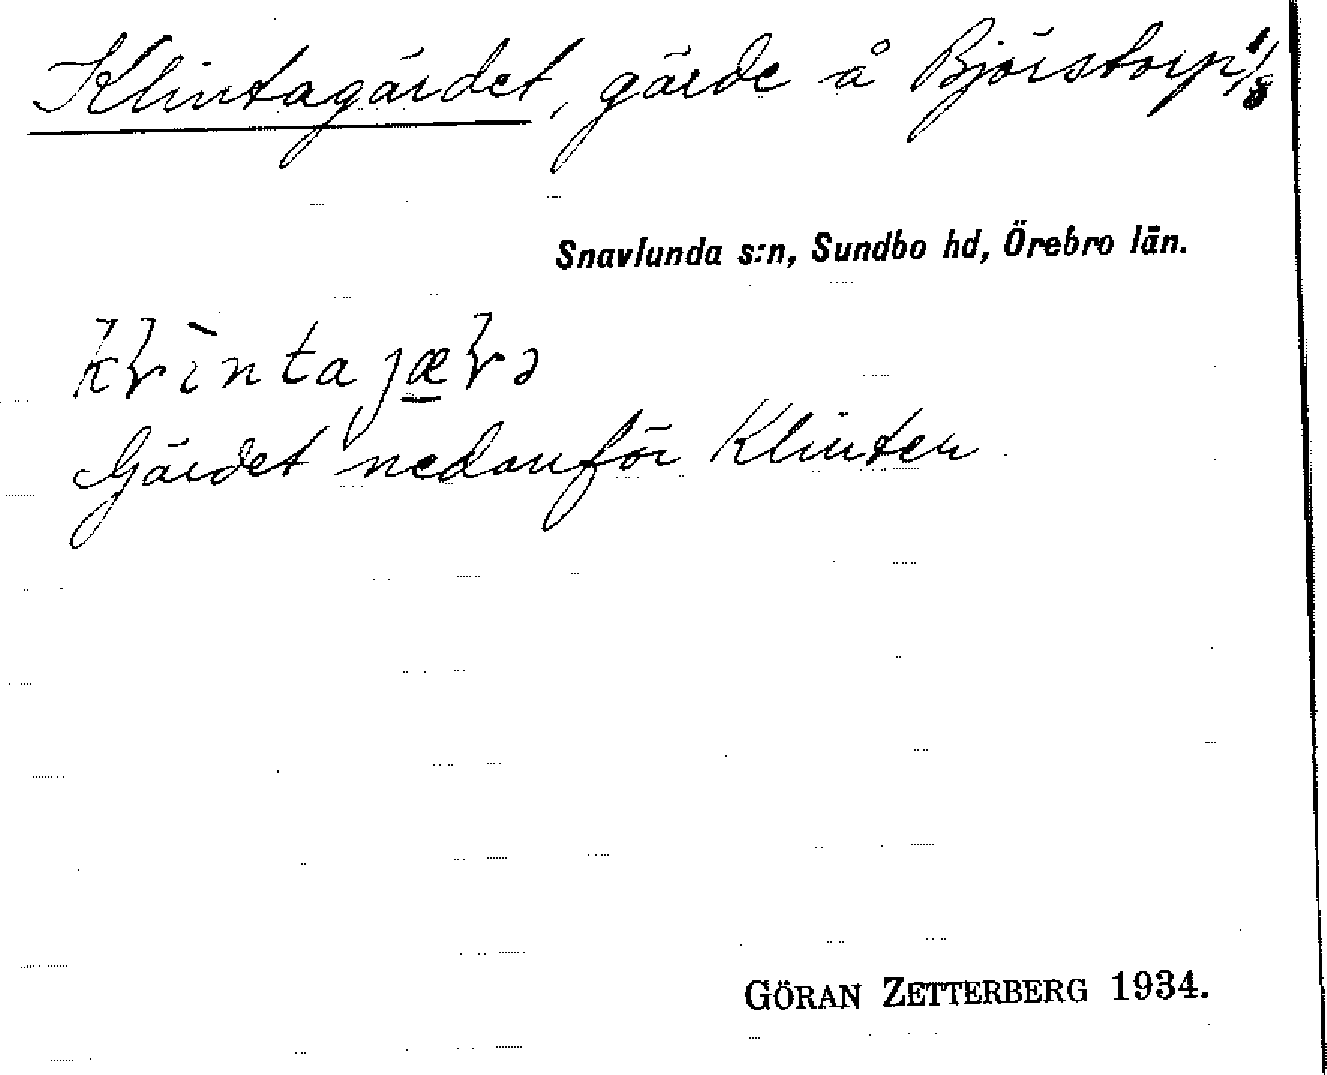 Klintagärdet, gärde å Björstorp 1/8
Snavlunda s:n, Sundbo hd, Örebro län.
Gärdet nedanför Klinten
GÖRAN ZETTERBERG 1934.